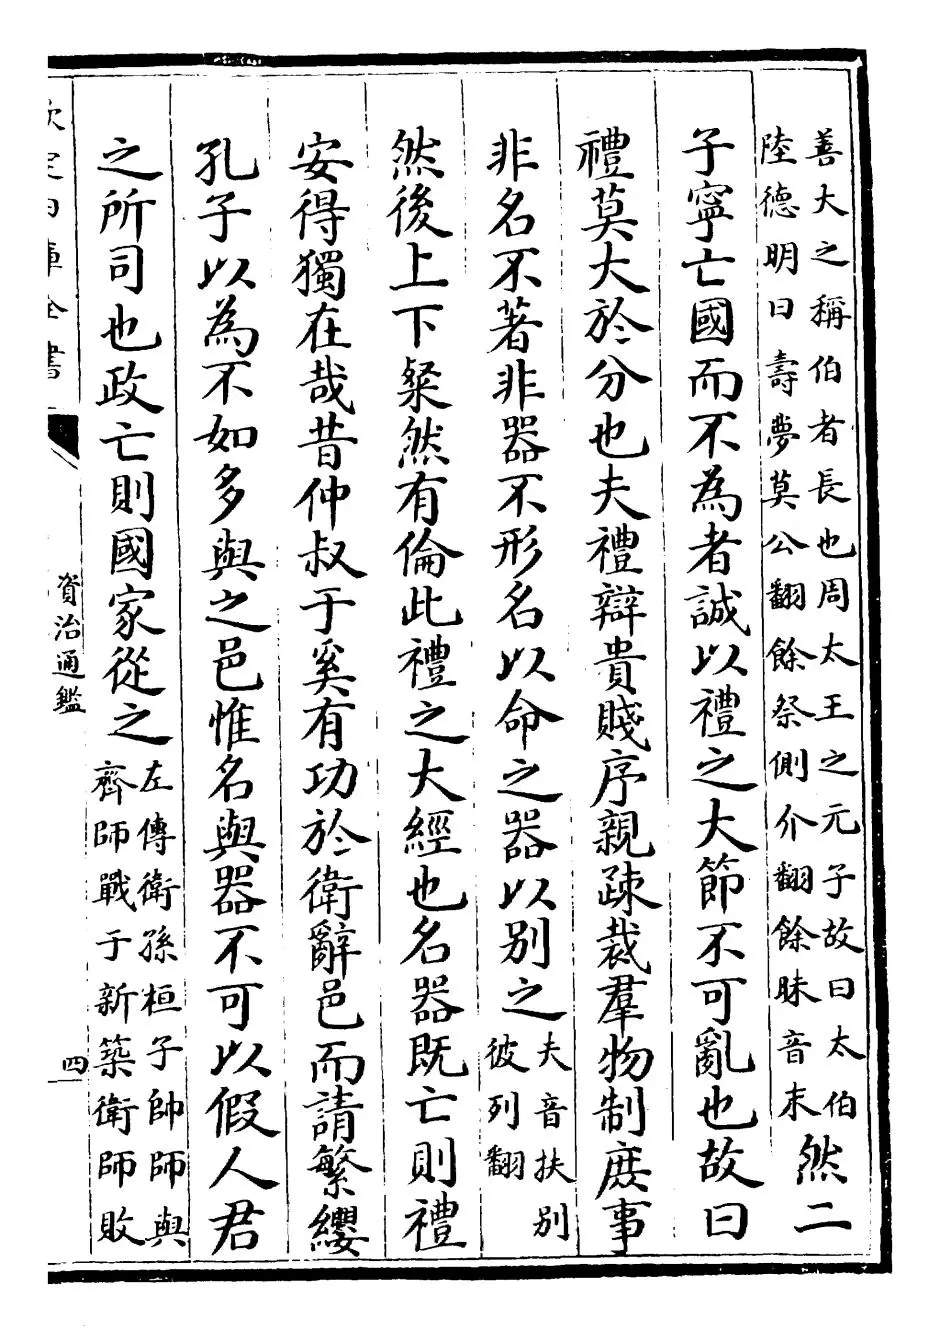 善大之稱伯者長也周太王之元子故曰太伯
陸德明曰壽夢莫公翻餘祭側介翻餘昧音末
然二
子寧亡國而不為者誠以禮之大節不可亂也故曰
禮莫大於分也夫禮辯貴賤序親疎裁羣物制庶事
非名不著非器不形名以命之器以別之
夫音扶別
彼列翻
然後上下粲然有倫此禮之大經也名器既亡則禮
安得獨在哉昔仲叔于奚有功於衛辭邑而請繁纓
孔子以為不如多與之邑惟名與器不可以假人君
之所司也政亡則國家從之
左傳衛孫桓子帥師與
齊師戰于新築衛師敗
資治通鑑
四